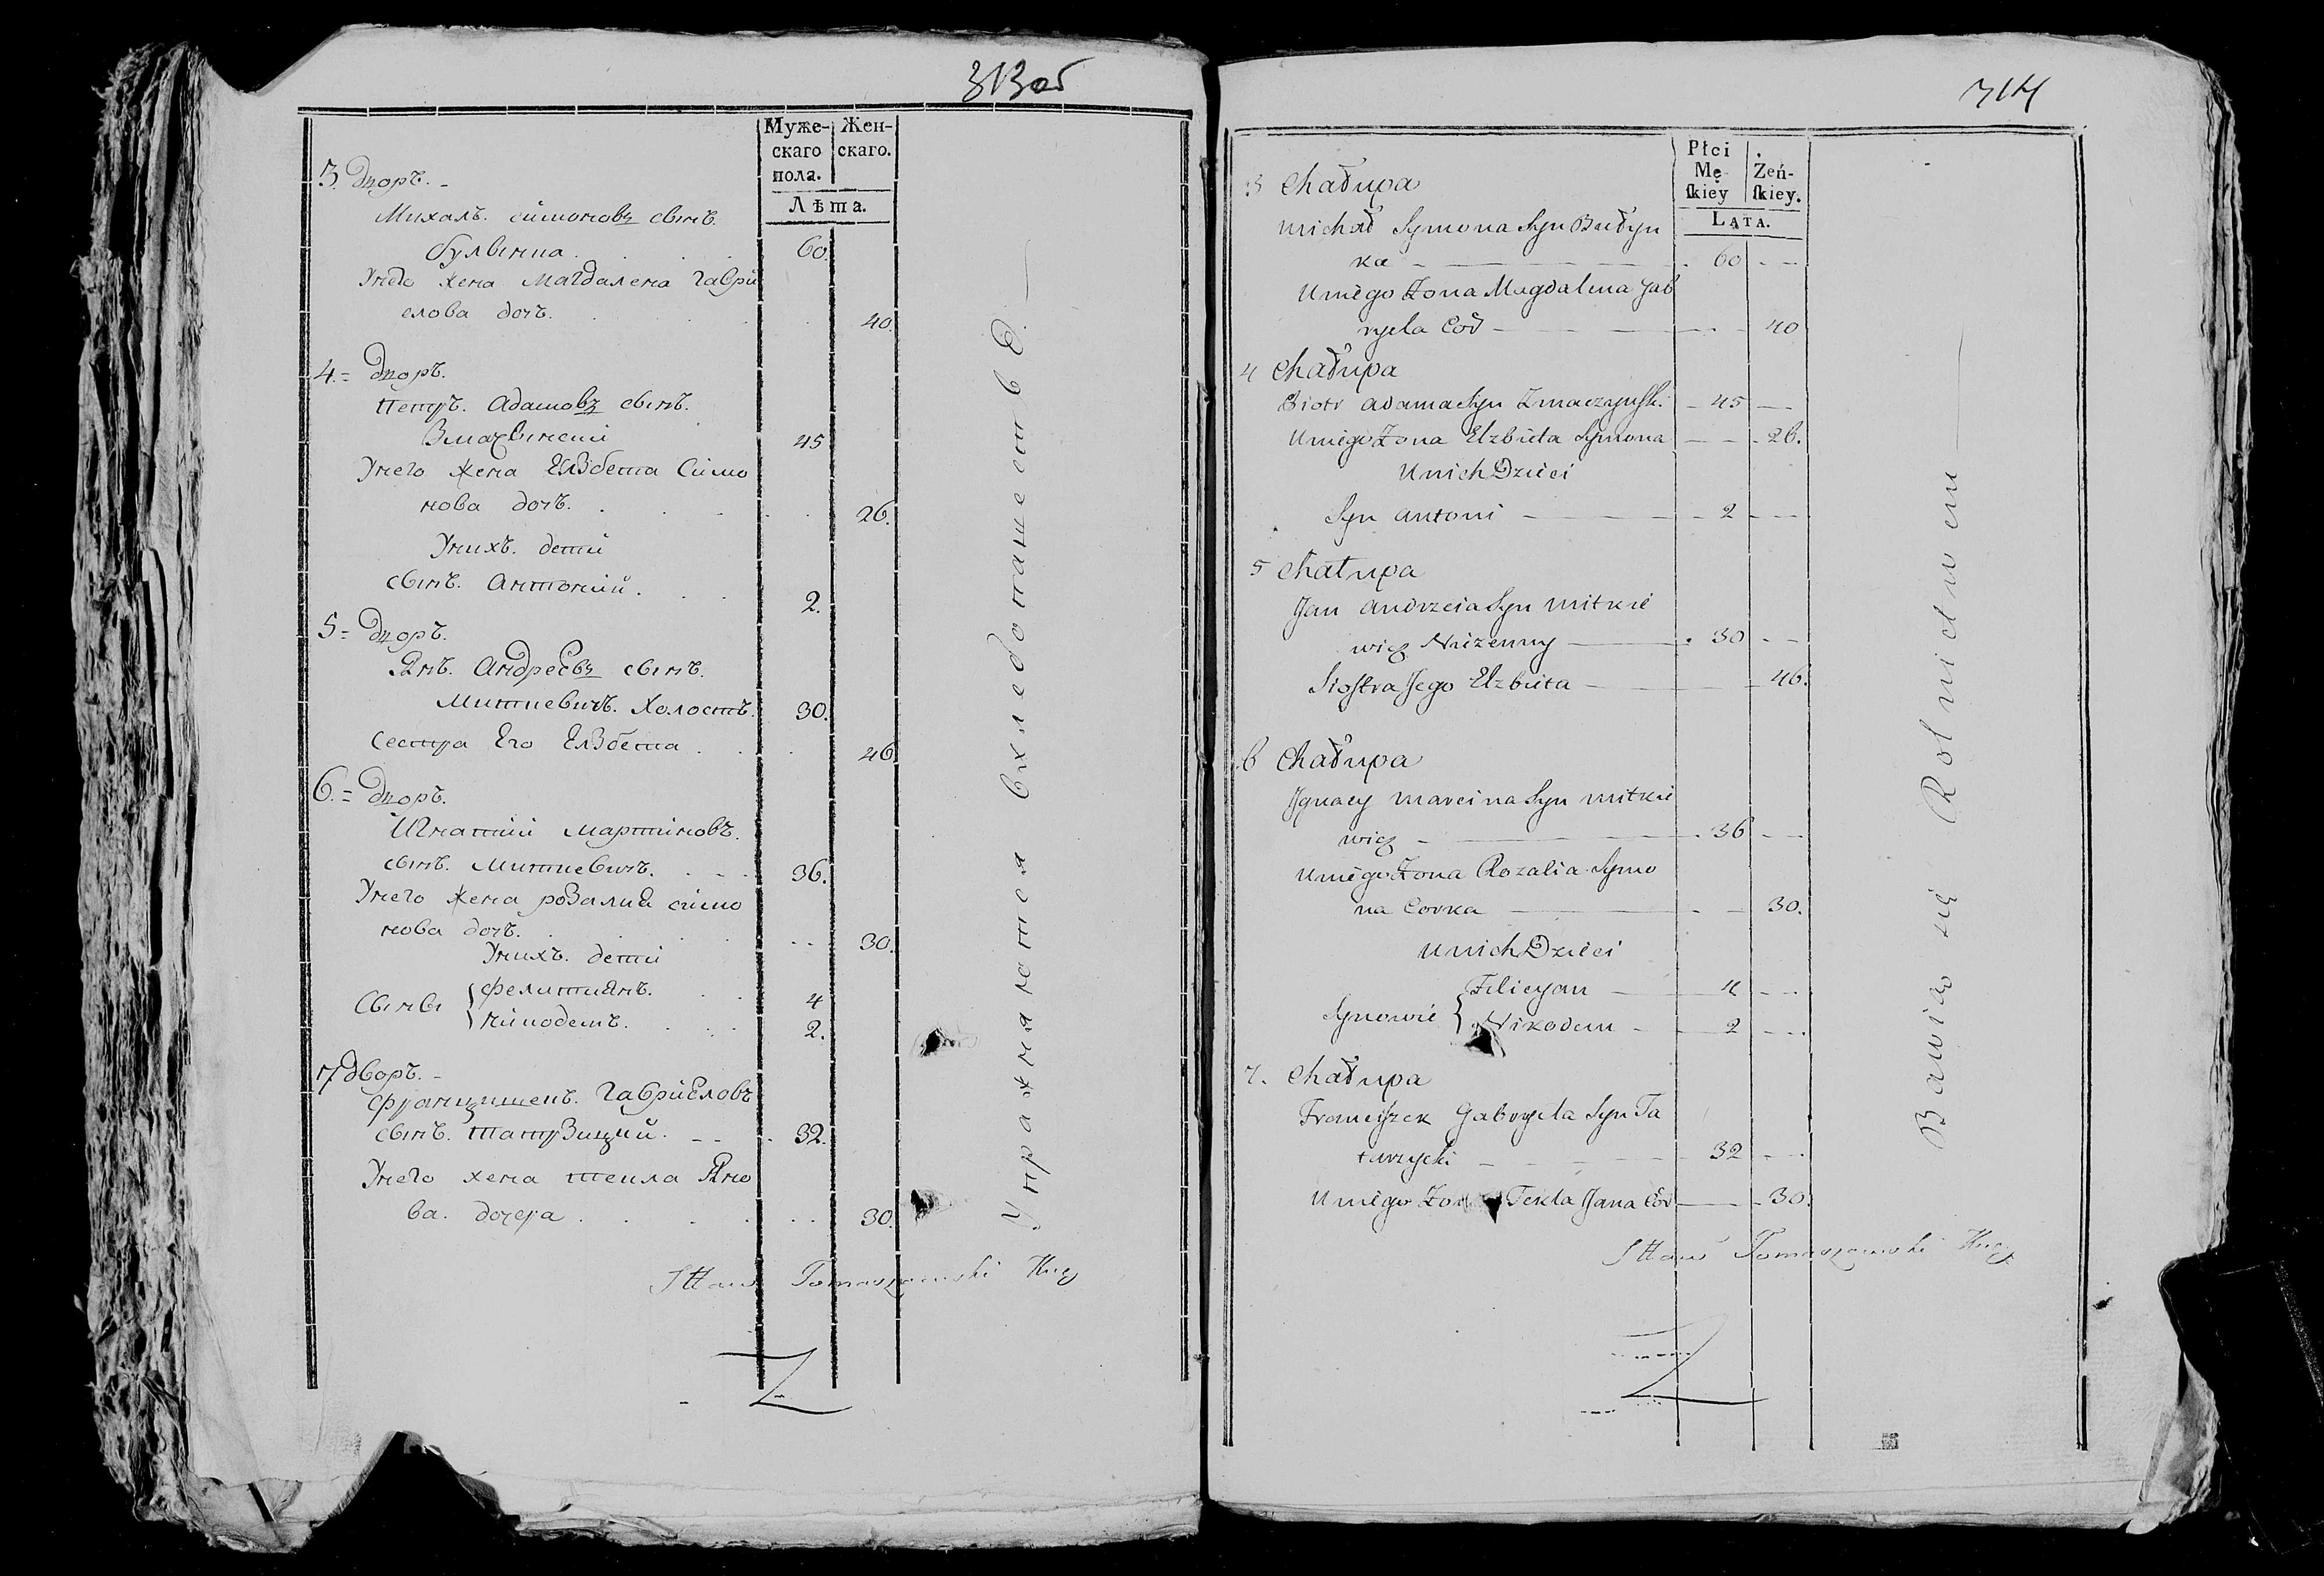 313об
Муже-
скаго
пола.
Жен-
скаго.
Лѣта.
3. Дворъ.
Михалъ. Симоновъ сынъ.
булынка . 60.
Унего жена Магдалена Гаври
елова дочь. 40.
4. = Дворъ.
Петръ. Адамовъ сынъ.
Змачинскій 45
Унего жена Елзбета Симо
нова дочь. 26.
Унихъ. дети
сынъ. Антоній. 2.
5 = Дворъ.
Янъ. Андреевъ сынъ.
Миткевичъ. Холостъ. 30.
Сестра Его Елзбета . 46.
6. = Дворъ.
Игнатій Мартиновъ.
сынъ. Миткевичъ. 36.
Унего жена розалия симо
нова дочь. 30.
Унихъ. дети
Сыны { Фелитиянъ. 4
Никодемъ. 2.
7. дворъ.
Францишекъ. Гавриеловъ
сынъ. Татурзицкий. 32.
Унего жена текла Яно
ва. дочера . 30.
Упражняются вхледопашестве.
Tomaszewski
314
Płci
Mę-
ſkiey
Żeń-
ſkiey.
Lata.
3 Chałupa
Michał Symona Syn Bułyn
ka 60
U niego Żona Magdalena Gab
ryela Cór 40
4 Chałupa
Piotr Adama Syn Zmaczynſki 45
U niego Żona Elzbieta Symona 26.
U nich Dzieci
Syn Antoni 2
5 Chałupa
Jan Andrzeia Syn Mitkie
wicz Nieżenny 30
Sioſtra Jego Elzbieta 46.
6 Chałupa
Ignacy Marcina Syn Mitkie
wicz 36
U niego Żona Rozalia Symo
na Corka 30.
U nich Dzieci
Synowie { Felicyan 4
Nikodem 2
7. Chałupa
Franciſzek Gabryela Syn Ta
turzycki 32
U niego Żona Tekla Jana Cór 30.
Bawią się Rolnictwem
Tomaszewski